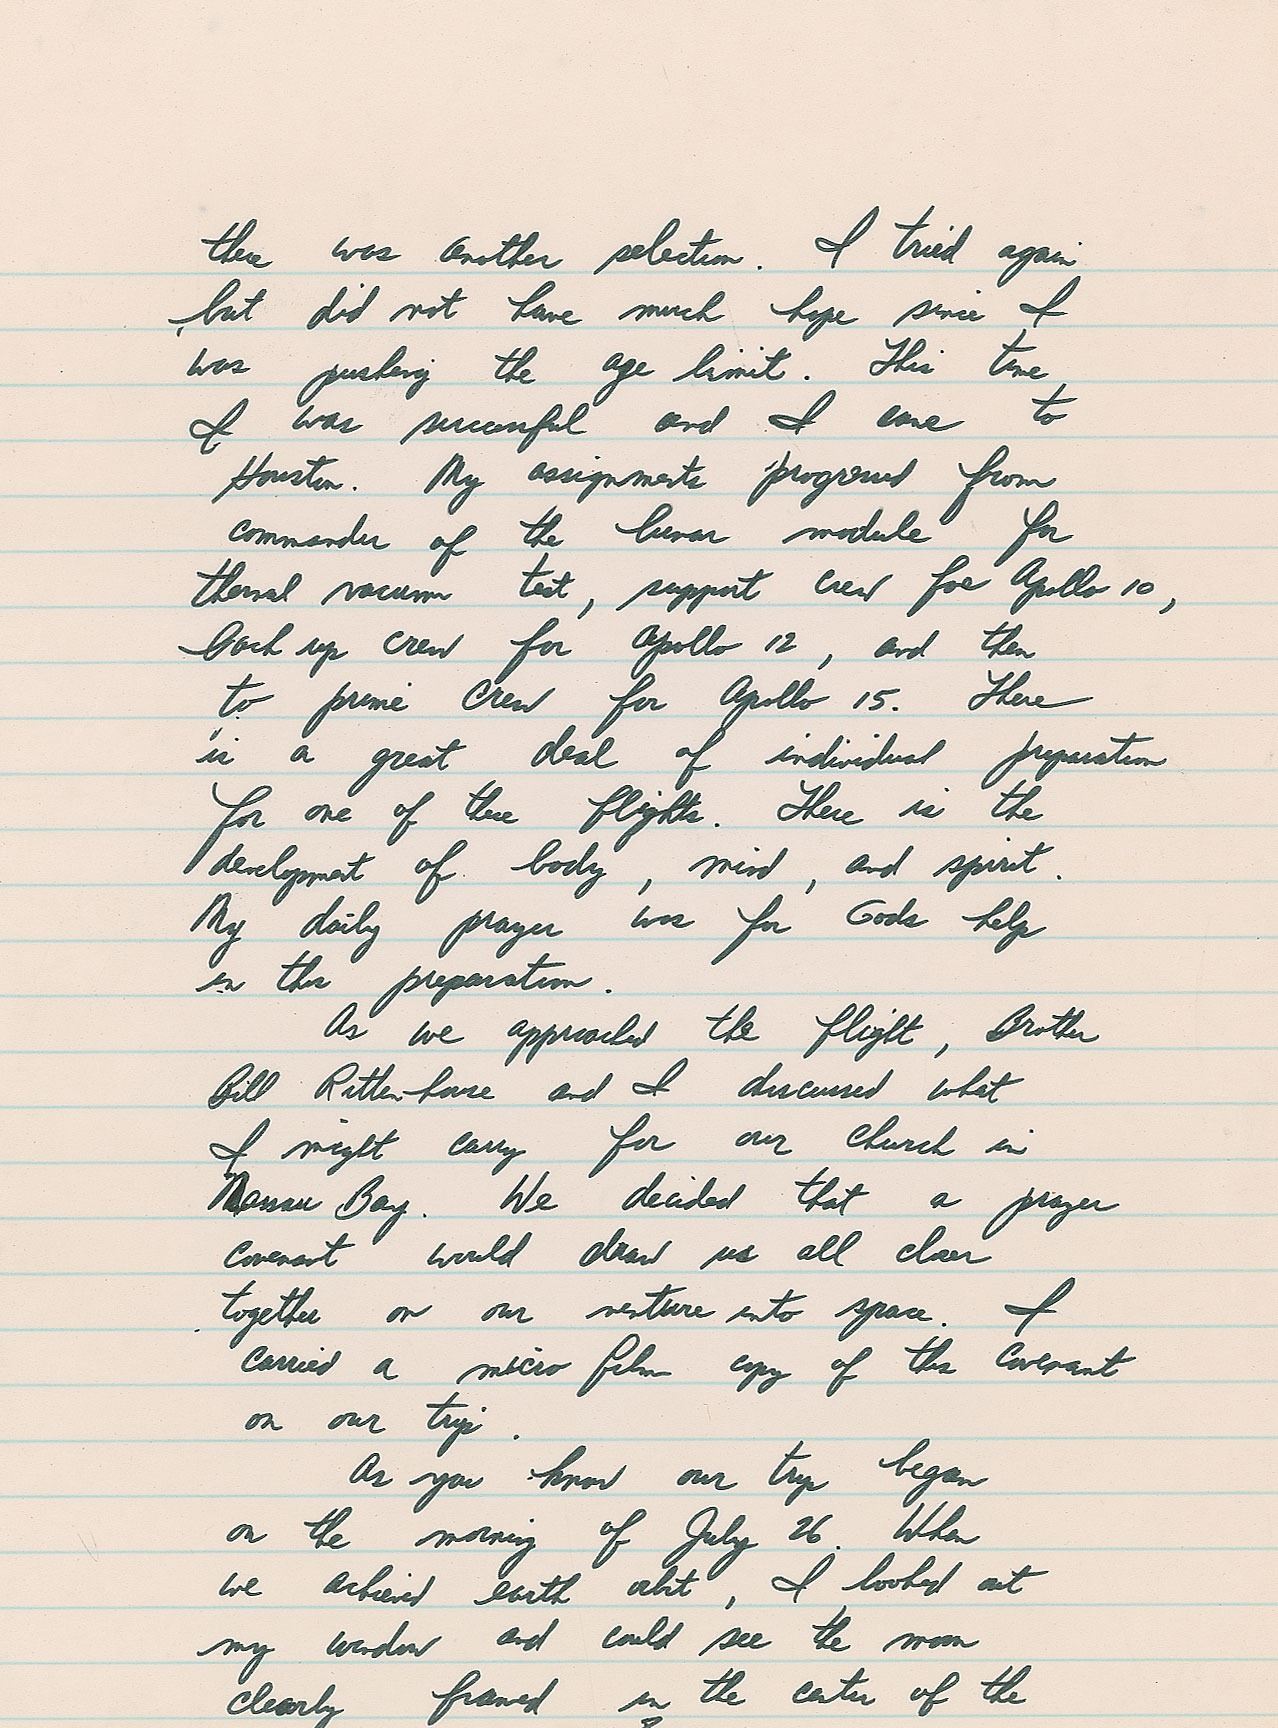 there was another selection. I tried again
but did not have much hope since I
was pushing the age limit. This time
I was successful and I came to
Houston. My assignments progressed from
commander of the lunar module for
thermal vacuum test, support crew for Apollo 10,
back up crew for Apollo 12, and then
to prime crew for Apollo 15. There
is a great deal of individual preparation
for one of these flights. There is the
development of body, mind, and spirit.
My daily prayer was for Gods help
in this preparation.
As we approached the flight, Brother
Bill Rittenhouse and I discussed what
I might carry for our church in
Nassau Bay. We decided that a prayer
covenant would draw us all closer
together on our venture into space. I
carried a micro film copy of this covenant
on our trip.
As you know our trip began
on the morning of July 26. When
we achieved earth orbit, I looked out
my window and could see the moon
clearly framed in the center of the